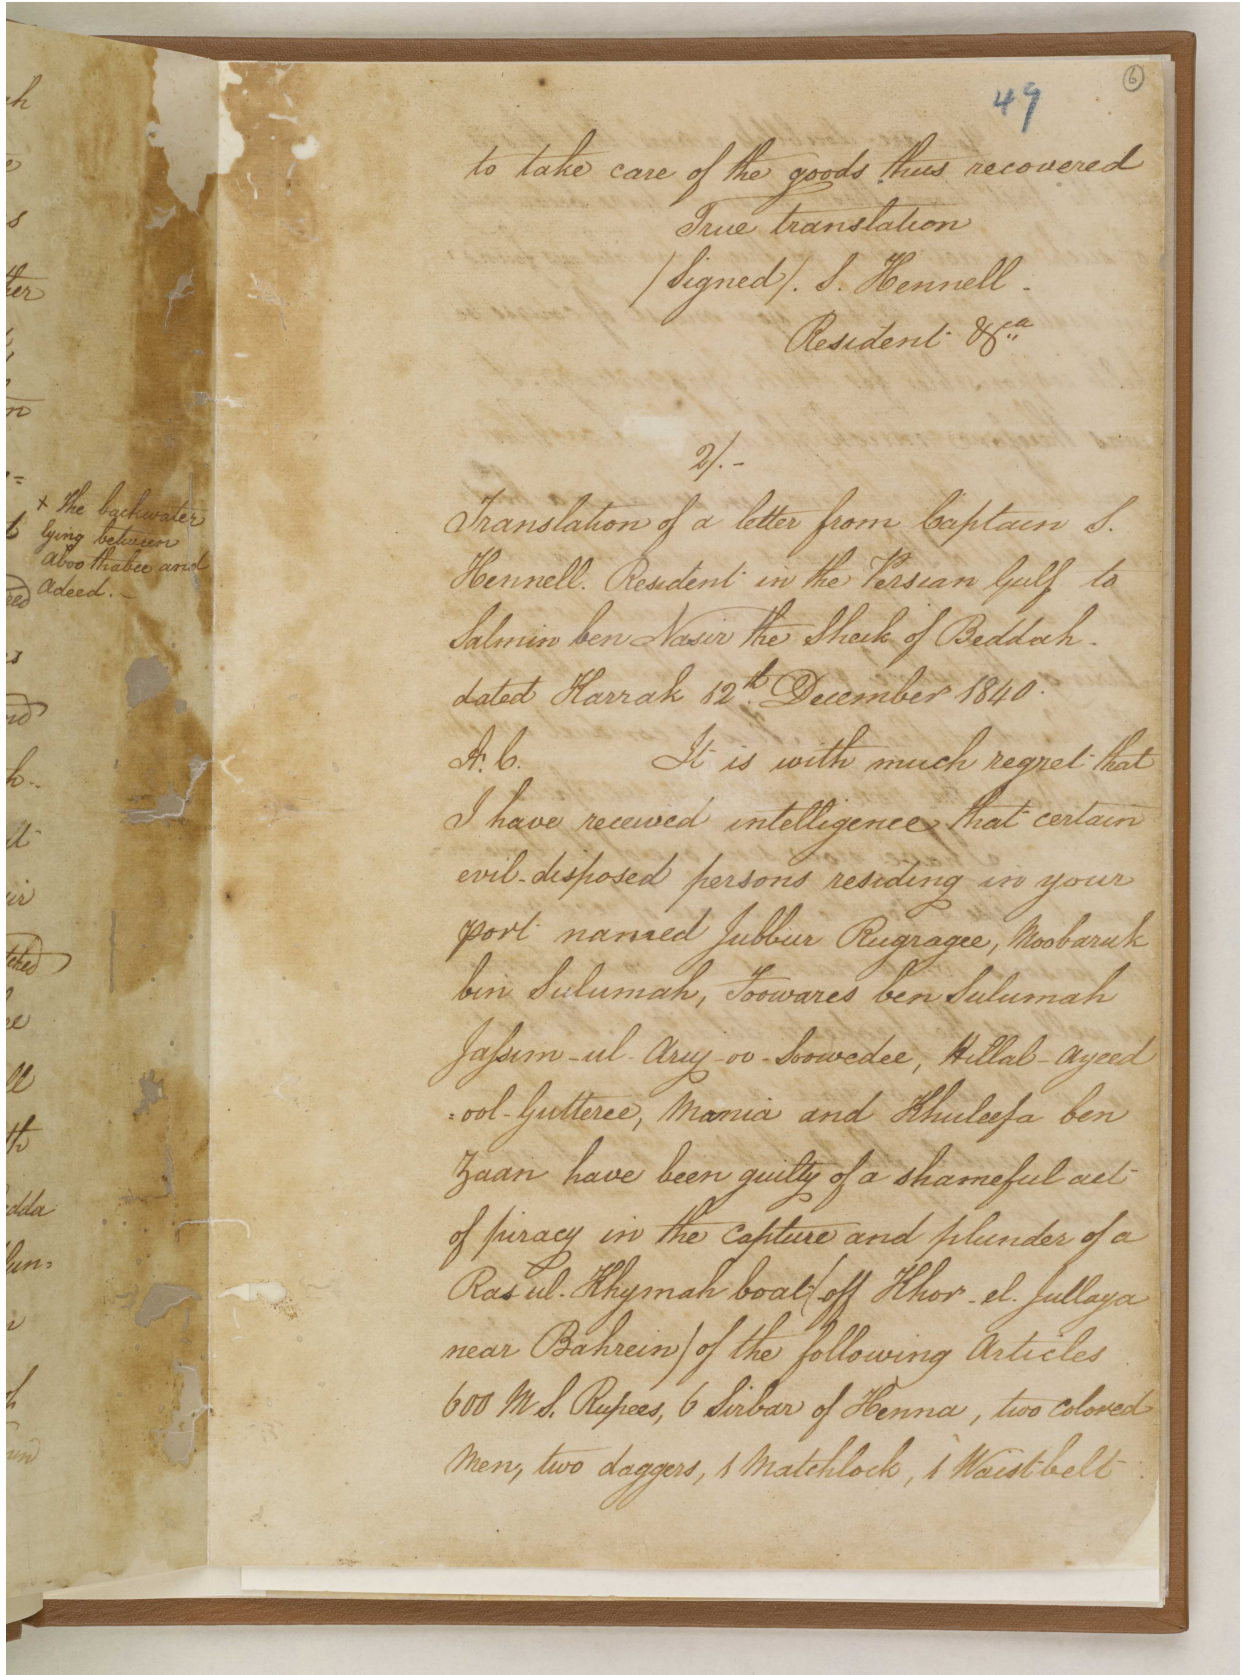 49
6
to take care of the goods thus recovered
True translation
/Signed/. S. Hennell -
Resident &ca
2/.-
Translation of a letter from Captain S.
Hennell. Resident in the Persian Gulf to
Salmin ben Nasir the Sheik of Beddah -
dated Karrak 12th. December 1840.
A.C. It is with much regret that
I have received intelligence that certain
evil-disposed persons residing in your
port named Jubbur Rugragee, Moobaruk
bin Sulumah, Toowares ben Sulumah
Jassim-ul-Aruj-oo-Soowedee, Hillal-Ayeed
=ool-Gutteree, Mania and Khuleefa ben
Zaan have been guilty of a shameful act
of piracy in the capture and plunder of a
Ras ul. Khymah boat (off Khor-el. Jullaya
near Bahrein) of the following Articles
600 M S. Rupees, 6 Sirbar of Henna, two colored
Men, two daggers, 1 Matchlock, 1 Waistbelt
x The backwater
lying between
Aboothabee and
Adeed. -